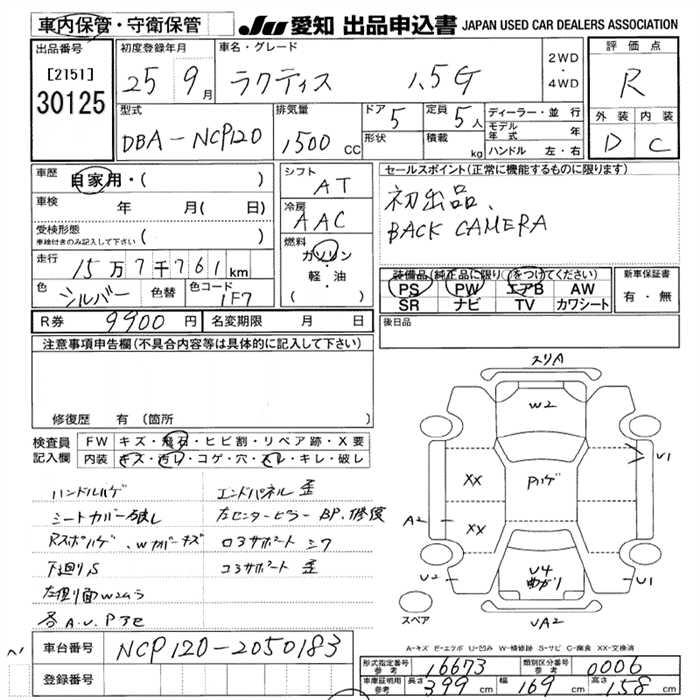 車内保管・守衛保管 JU 愛知 出品申込書 JAPAN USED CAR DEALERS ASSOCIATION
出品番号 初度登録年月 車名・グレード 評価点
[2151] 25 9月 ラクティス 1.5G 2WD・4WD R
30125
型式 排気量 ドア 5 定員 5人 ディーラー・並行 外装 内装
DBA-NCP120 1500CC 形状 積載 kg モデル年式 年 D C
ハンドル 左・右
車歴 自家用・( ) シフト AT セールスポイント(正常に機能するものに限ります)
車検 年 月( 日) 冷房 AAC 初出品、
受検形態 ( ) BACK CAMERA
車検付きのみ記入して下さい
燃料 ガソリン・軽・油 ( )
走行 15万7千761km
装備品(純正品に限り○をつけてください) 新車保証書
色 シルバー 色替 色コード 1F7 PS PW エアB AW 有・無
SR ナビ TV カワシート
R券 9900円 名変期限 月 日 後日品
注意事項申告欄(不具合内容等は具体的に記入して下さい)
修復歴 有(箇所
検査員記入欄 FW キズ・飛石・ヒビ割・リペア跡・X要
内装 キズ・汚レ・コゲ・穴・スレ・キレ・破レ
ハンドルハゲ エンドパネル歪
シートカバー破レ 左センターピラーBP.修復
Rスポハゲ、Wカバーキズ ロ3サポートシワ
下廻りS コ3サポート歪
左担り面W2ムラ
各A.U.P3E
スリA
W2
XX Pハゲ U1
A2 XX
U2 U4 曲がり U1
スペア UA2
A-キズ E-エクボ U-凹み W-補修跡 S-サビ C-腐食 XX-交換済
車台番号 NCP120-2050183
登録番号
形式指定番号 参考 16673 類別区分番号 参考 0006
車庫証明用 参考 長さ 399cm 幅 169cm 高さ 158cm